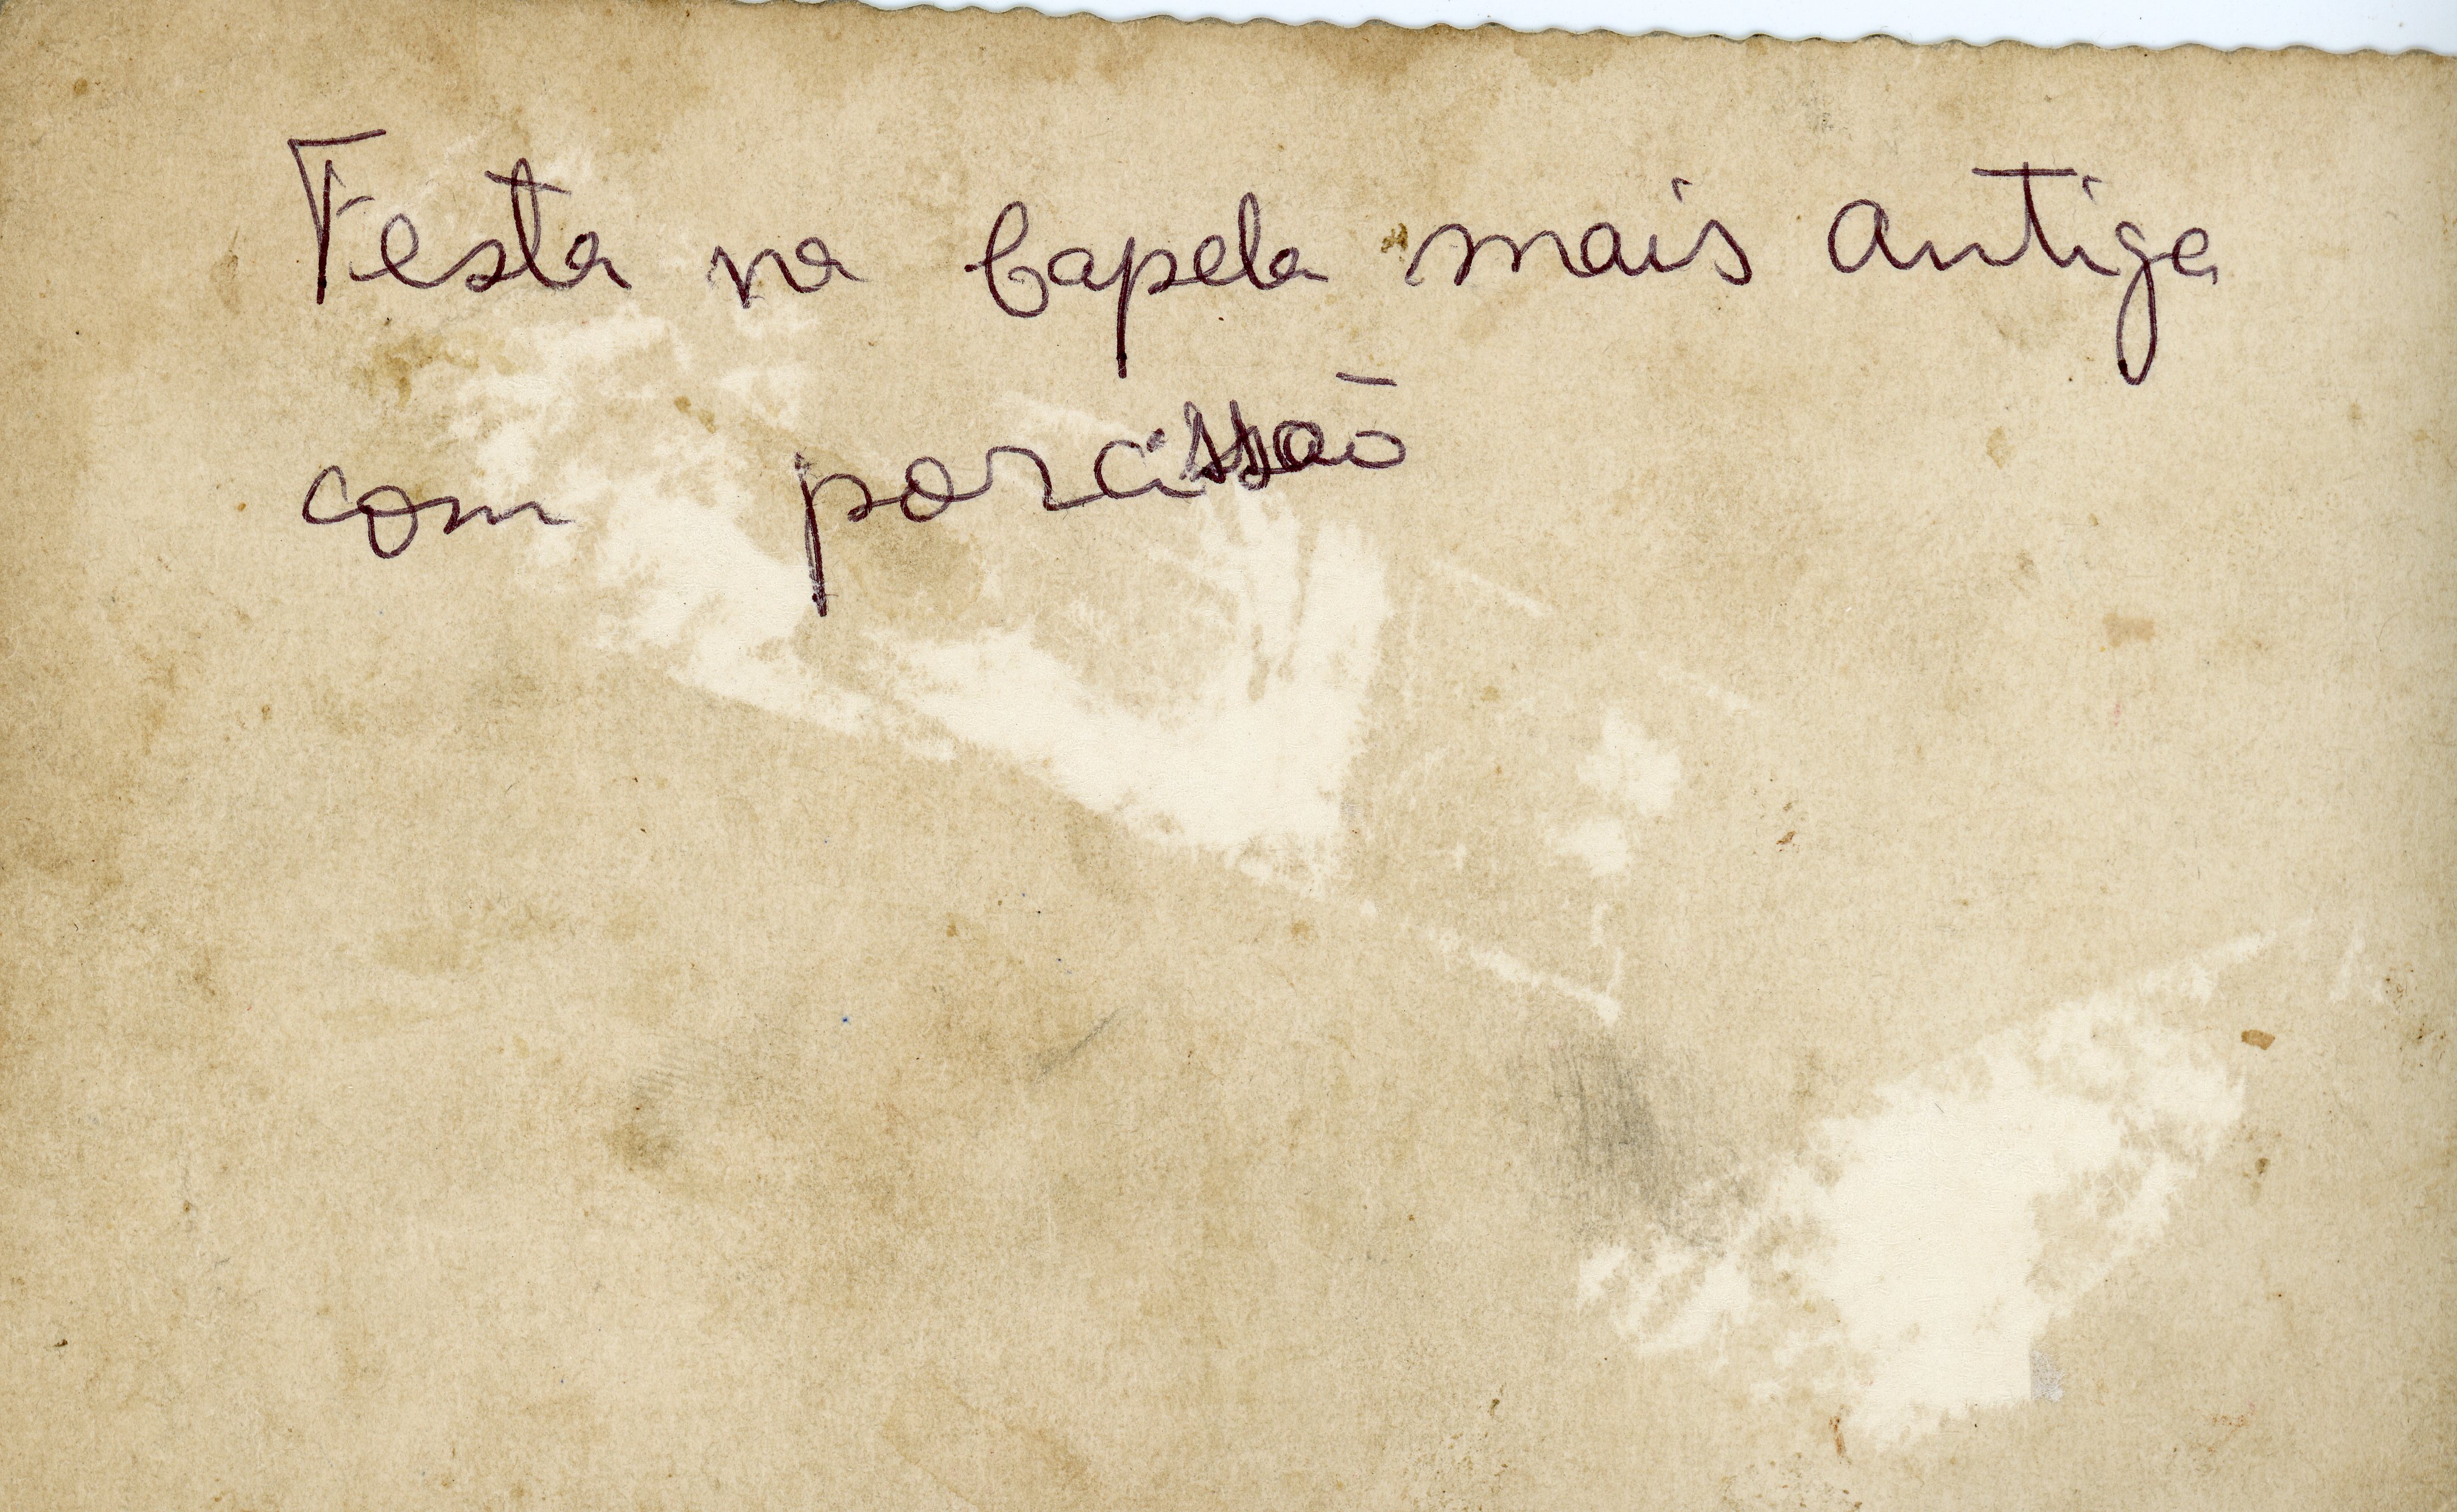 Festa na Capela mais antiga
com porcissão